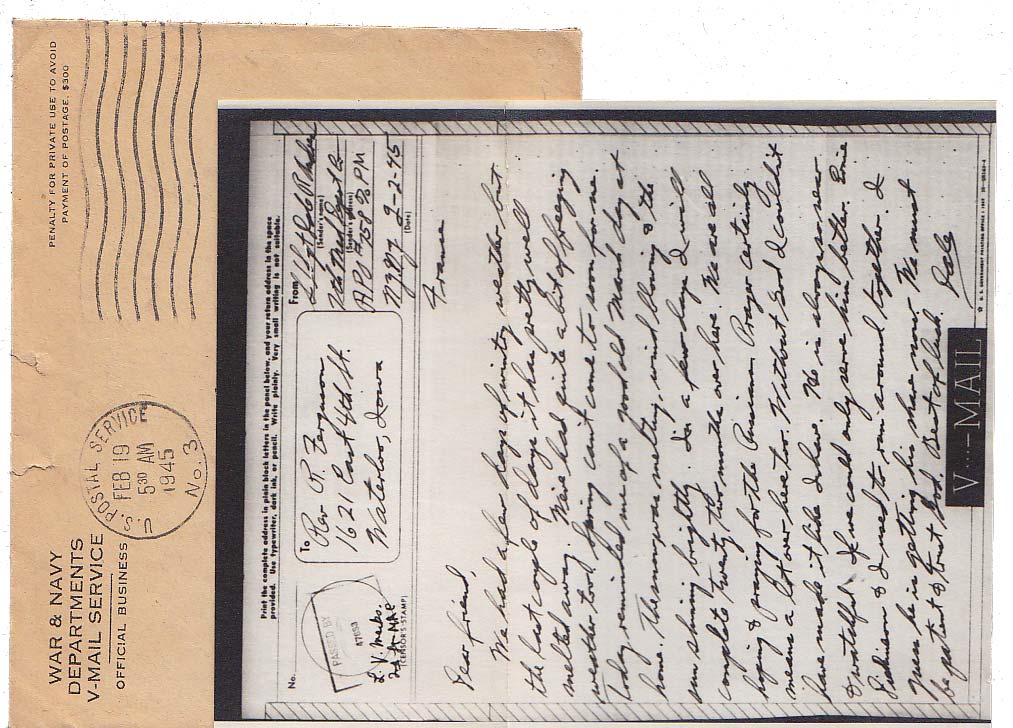 WAR & NAVY
DEPARTMENTS
V-MAIL SERVICE
OFFICIAL BUSINESS
U.S. POSTAL SERVICE
FEB 19
5 30 AM
1945
No. 3
PENALTY FOR PRIVATE USE TO AVOID
PAYMENT OF POSTAGE, $300
Print the complete address in plain block letters in the panel below, and your return address in the space
provided. Use typewriter, dark ink, or pencil. Write plainly. Very small writing is not suitable.
No.
PASSED BY
47653
L. V.
(CENSOR'S STAMP)
To
Rev R. Ferguson
1621 East 4th St.
Waterloo, Iowa
From
Dale
(Sender's name)
(Sender's address)
APO 758 % PM
NY NY 2-2-45
(Date)
France
Dear friend,
We had a few days of wintry weather but
the last couple of days it has pretty well
melted away. We've had quite a bit of freezing
weather too, Spring can't come to soon for me.
Today reminded me of a good old March day at
home. The snow was melting, wind blowing & the
sun shining brightly. In a few days I will
complete twenty two months over here. We are all
hoping & praying for the Russians. Prayer certainly
means a lot over here too. Without God I couldn't
have made it like I have. He is always so near
& watchful. If we could only serve him better. Ernie
& I used to run around together. I
guess he is getting his share now. We must
be patient & trust God. Best of luck.
Dale
U. S. GOVERNMENT PRINTING OFFICE
V···—MAIL